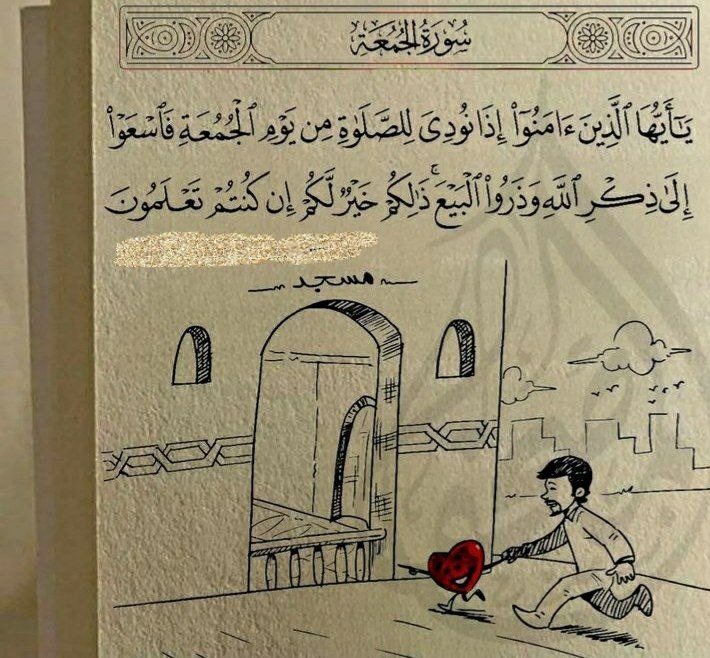 سُورَةُ الجُمُعَة
يَٰٓأَيُّهَا ٱلَّذِينَ ءَامَنُوٓا۟ إِذَا نُودِىَ لِلصَّلَوٰةِ مِن يَوْمِ ٱلْجُمُعَةِ فَٱسْعَوْا۟
إِلَىٰ ذِكْرِ ٱللَّهِ وَذَرُوا۟ ٱلْبَيْعَ ۚ ذَٰلِكُمْ خَيْرٌ لَّكُمْ إِن كُنتُمْ تَعْلَمُونَ
مسجد